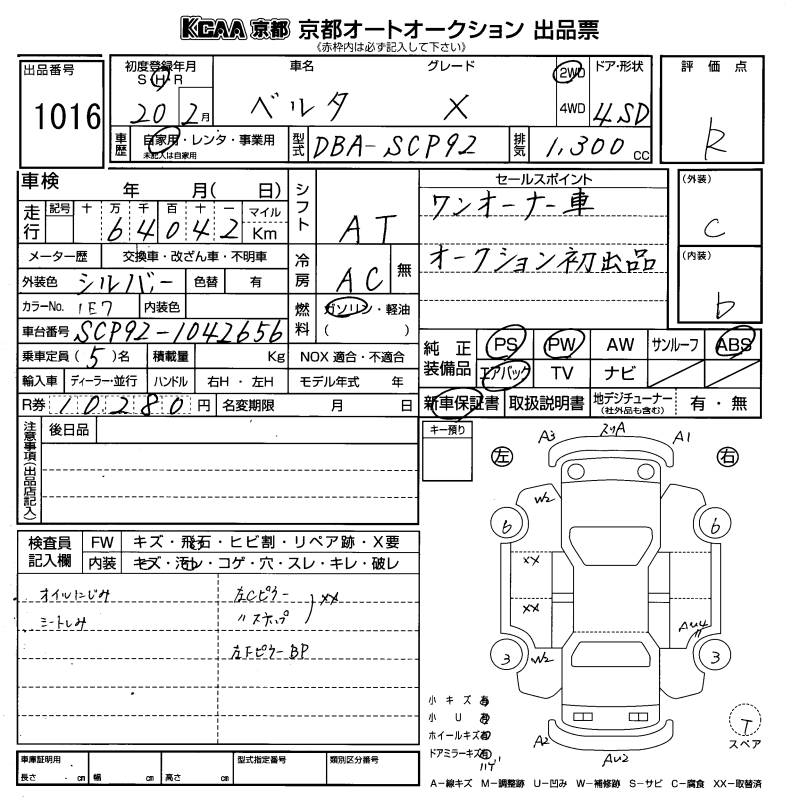 KCAA 京都 京都オートオークション 出品票
《赤枠内は必ず記入して下さい》
出品番号
1016
初度登録年月
S H R
20 2月
車名
ベルタ
グレード
X
2WD
4WD
ドア・形状
4SD
評価点
R
車歴
自家用・レンタ・事業用
未記入は自家用
型式
DBA-SCP92
排気
1,300 CC
車検 年 月( 日)
走行
記号 十 万 千 百 十 一 マイル
6 4 0 4 2 Km
メーター歴 交換車・改ざん車・不明車
外装色 シルバー 色替 有
カラーNo. 1E7 内装色
車台番号 SCP92-1042656
乗車定員 (5)名 積載量 Kg
輸入車 ディーラー・並行 ハンドル 右H・左H
R券 10280 円 名変期限 月 日
シフト AT
冷房 AC 無
燃料 ガソリン・軽油
( )
NOX 適合・不適合
モデル年式 年
セールスポイント
ワンオーナー車
オークション初出品
(外装)
C
(内装)
D
純正装備品
PS PW AW サンルーフ ABS
エアバック TV ナビ
新車保証書 取扱説明書 地デジチューナー (社外品も含む) 有・無
注意事項(出品店記入)
後日品
キー預り
検査員記入欄
FW キズ・飛石・ヒビ割・リペア跡・X要
内装 キズ・汚レ・コゲ・穴・スレ・キレ・破レ
オイルにじみ
シートしみ
左Cピラー
〃ステップ
XX
左Fピラー BP
左 右
A3 スリA A1
W2
6 6
XX
XX
AU4
3 W2 3
A2 AU2
小キズ 有
小U 有
ホイールキズ 有
ドアミラーキズ 有
T
スペア
車庫証明用
長さ cm 幅 cm 高さ cm
型式指定番号
類別区分番号
A-線キズ M-調整跡 U-凹み W-補修跡 S-サビ C-腐食 XX-取替済